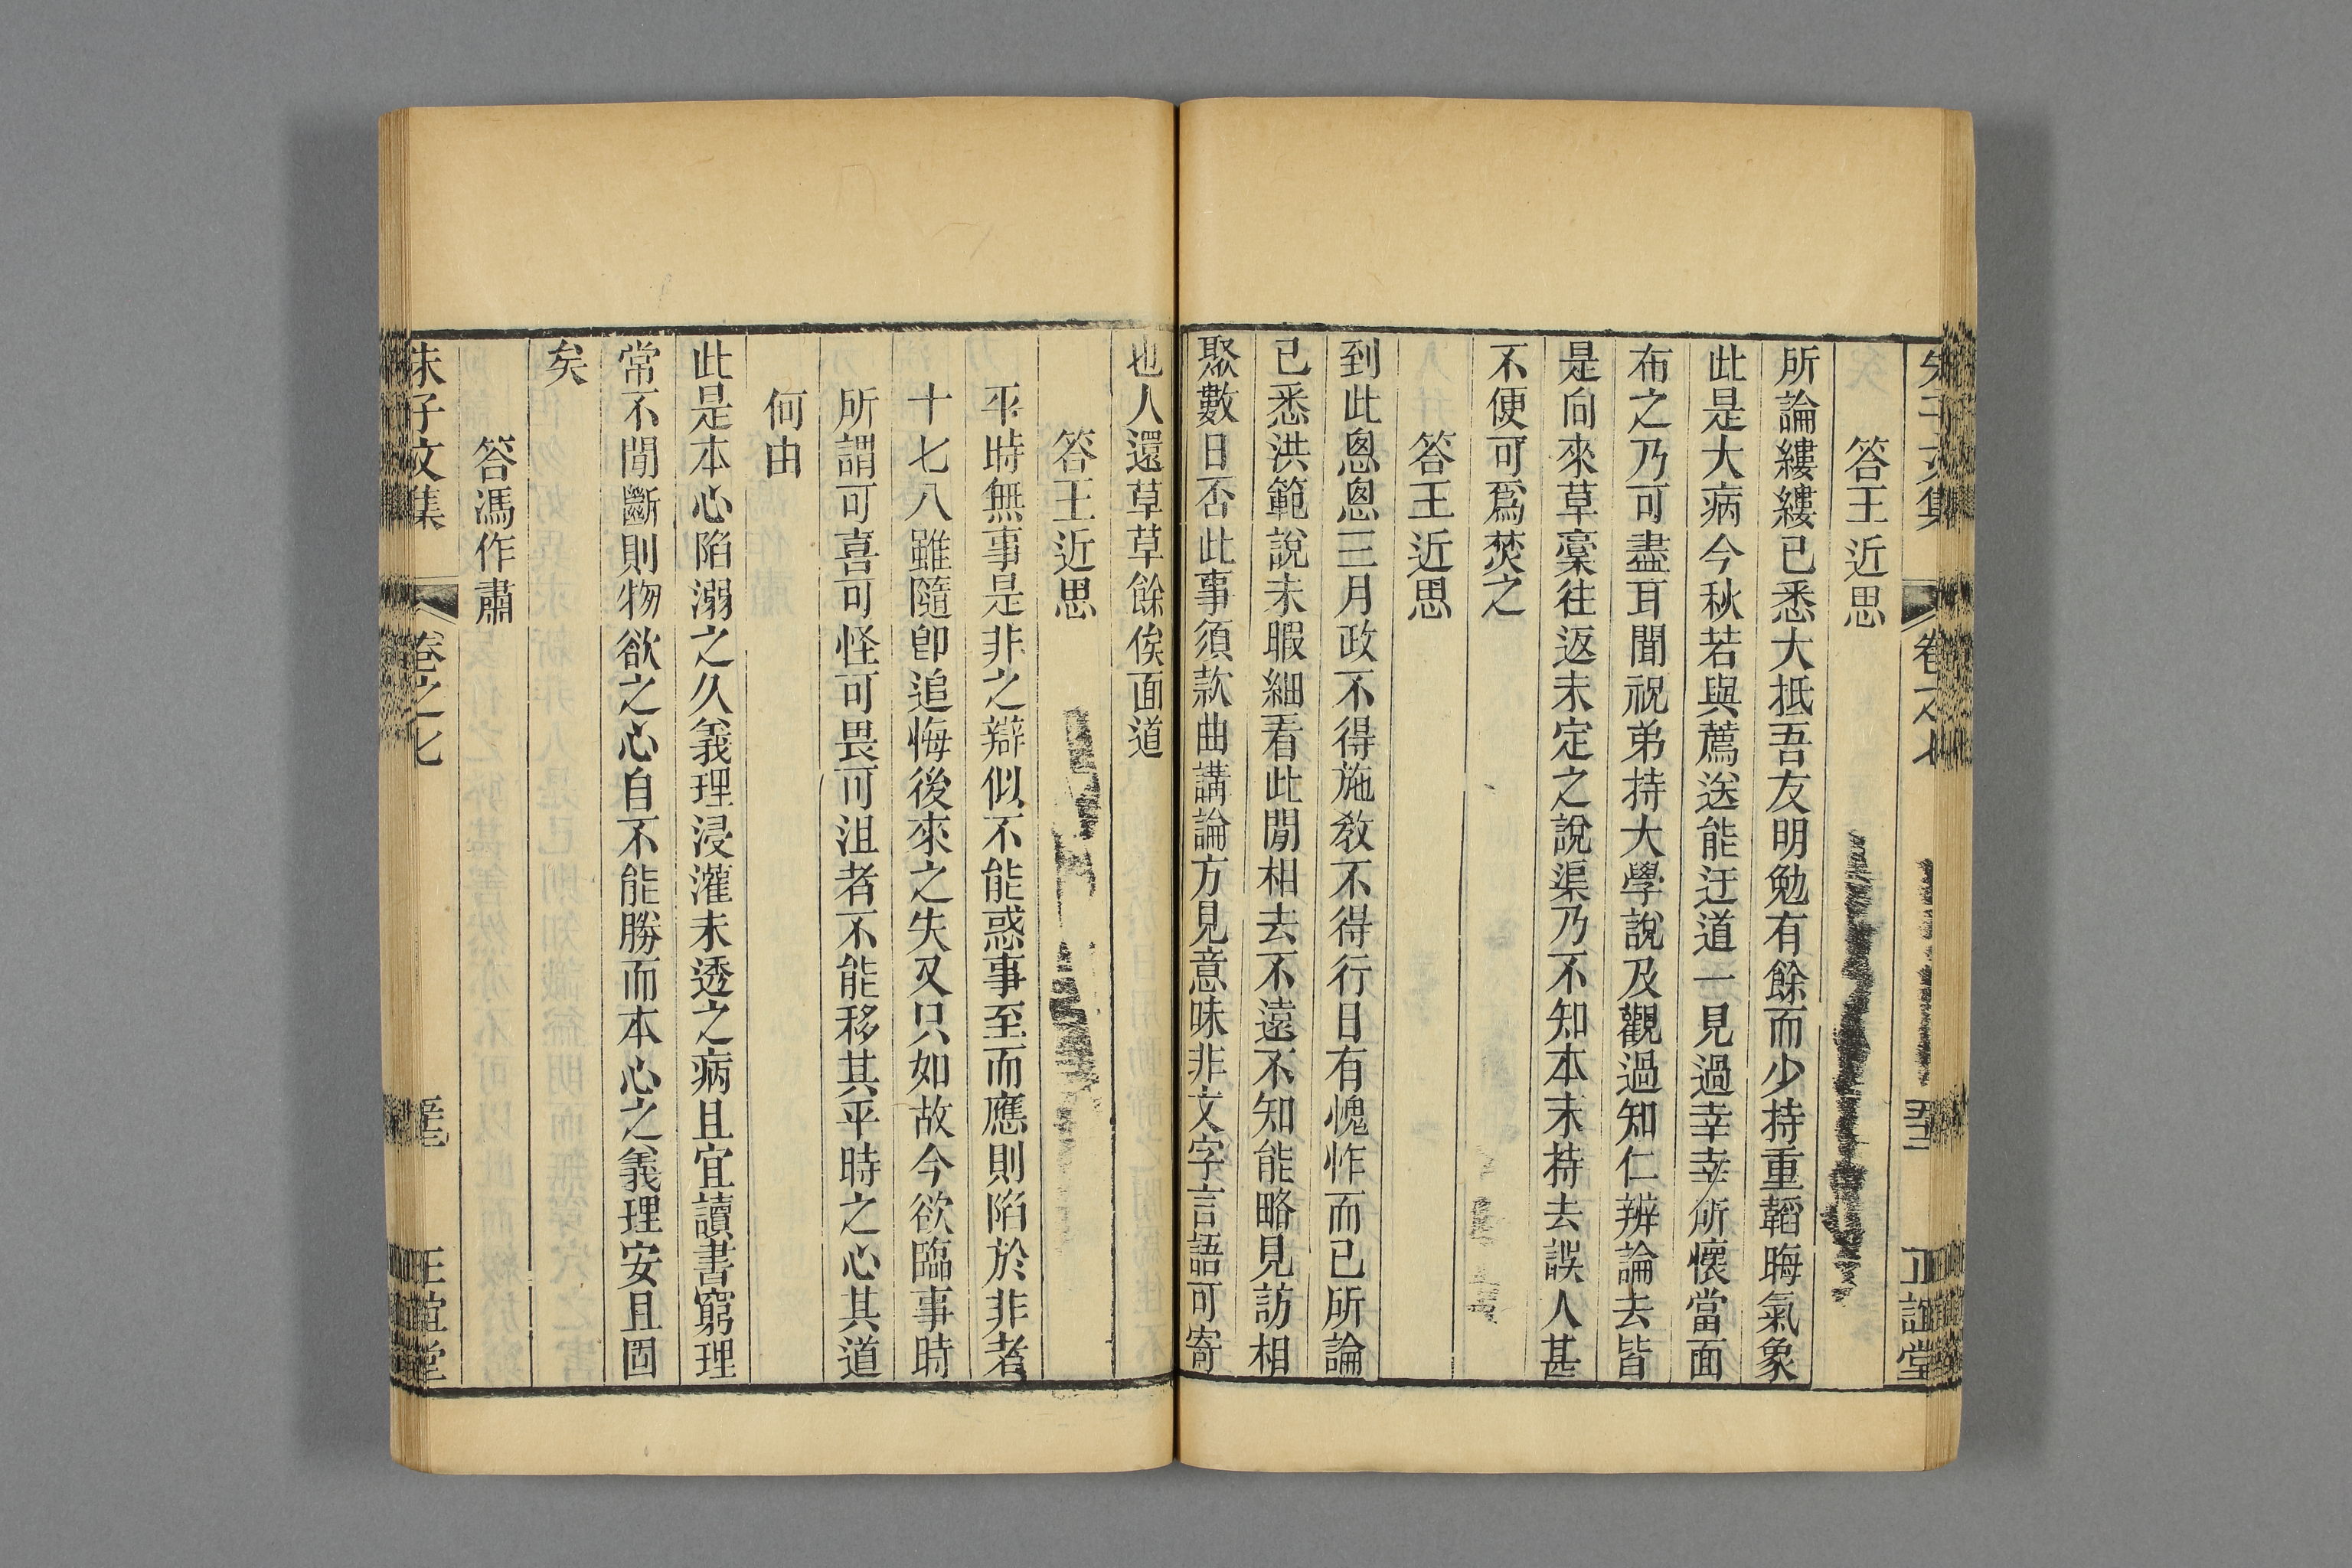 答王近思
所論縷縷已悉大抵吾友明勉有餘而少持重韜晦氣象
此是大病今秋若與薦送能迂道一見過幸幸所懷當面
布之乃可盡耳聞祝弟持大學說及觀過知仁辨論去皆
是向來草稾往返未定之說渠乃不知本末持去誤人甚
不便可爲焚之
答王近思
到此悤悤三月政不得施教不得行日有愧怍而已所論
已悉洪範說未暇細看此閒相去不遠不知能略見訪相
聚數日否此事須款曲講論方見意味非文字言語可寄
也人還草草餘俟面道
答王近思
平時無事是非之辯似不能惑事至而應則陷於非者
十七八雖隨卽追悔後來之失又只如故今欲臨事時
所謂可喜可怪可畏可沮者不能移其平時之心其道
何由
此是本心陷溺之久義理浸灌未透之病且宜讀書窮理
常不閒斷則物欲之心自不能勝而本心之義理安且固
矣
答馮作肅
朱子文集
卷之七
正誼堂